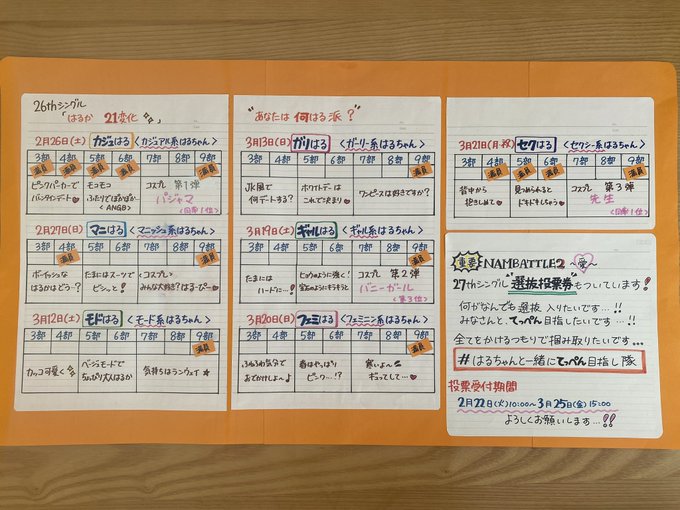 26thシングル
"はるか 21変化"
2月26日(土) カジュはる〈カジュアル系はるちゃん〉
3部 4部 5部 6部 7部 8部 9部
満員 満員 満員 満員 満員
ピンクパーカーで
バレンタインデート♥
モコモコ
ふたりでぽかぽか…
<ANGB>
コスプレ 第1弾
パジャマ
<同率1位>
2月27日(日) マニはる〈マニッシュ系はるちゃん〉
3部 4部 5部 6部 7部 8部 9部
満員 満員
ボーイッシュな
はるかはどう…?
たまにはスーツで
ビシッと!
<コスプレ>
みんな大好き?はるーぴー♥
3月12日(土) モドはる〈モード系はるちゃん〉
3部 4部 5部 6部 7部 8部 9部
満員
カッコ可愛く
ベージュモードで
ちょっぴり大人はるか
気持ちはランウェイ★
"あなたは 何はる派?"
3月13日(日) ガリはる〈ガーリー系はるちゃん〉
3部 4部 5部 6部 7部 8部 9部
満員
JK風で
何デートする?
ホワイトデーは
これで決まり♥
ワンピースは好きですか?
3月19日(土) ギャルはる〈ギャル系はるちゃん〉
3部 4部 5部 6部 7部 8部 9部
満員 満員
たまには
ハードに…!
コスプレ 第2弾
バニーガール
<第3位>
3月20日(日) フェミはる〈フェミニン系はるちゃん〉
3部 4部 5部 6部 7部 8部 9部
満員
ふわふわ気分で
おでかけしよ〜♪
春はやっぱり
ピンク…!?
寒いよ〜
ぎゅってして…♥
3月21日(月・祝) セクはる〈セクシー系はるちゃん〉
3部 4部 5部 6部 7部 8部 9部
満員 満員 満員 満員
背中から
抱きしめて♡
見つめられると
ドキドキしちゃう♡
コスプレ 第3弾
先生
<同率1位>
重要 NAMBATTLE2 〜愛〜
27thシングル"選抜投票券"もついています!
何がなんでも選抜入りたいです…!!
みなさんと、てっぺん目指したいです…!!
全てをかけるつもりで掴み取りたいです…
#はるちゃんと一緒にてっぺん目指し隊
投票受付期間
2月22日(火)10:00〜3月25日(金)15:00
よろしくお願いします…!!